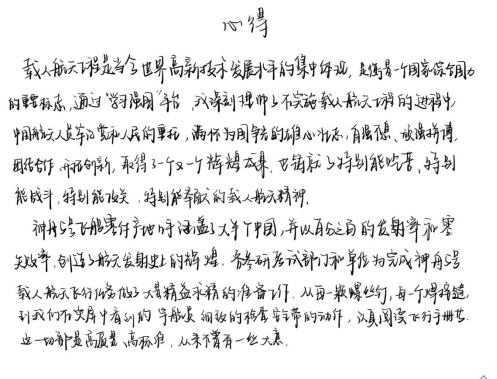 心得
载人航天工程是当今世界高新技术发展水平的集中体现，是衡量一个国家综合国力
的重要标志，通过“学习强国”平台，我深刻理解了不实施载人航天工程的进程中，
中国航天人牢记党和人民的重托，满怀为国争光的雄心壮志，自强不息、顽强拼搏，
团结合作、开拓创新，取得了一个又一个辉煌成果，也铸就了特别能吃苦，特别
能战斗，特别能攻关，特别能奉献的载人航天精神。
神舟五号飞船零件产地几乎涵盖了大半个中国，并以百分之百的发射率和零
失败率，创造了航天发射史上的辉煌。各参研参试部门和单位为完成神舟五号
载人航天飞行任务做了大量精益求精的准备工作，从每一颗螺丝钉，每一个焊接缝
到我们在实库中看到的宇航员细致的检查安全带的动作，认真阅读飞行手册等
这一切都是高质量、高标准，从来不曾有一丝大意。